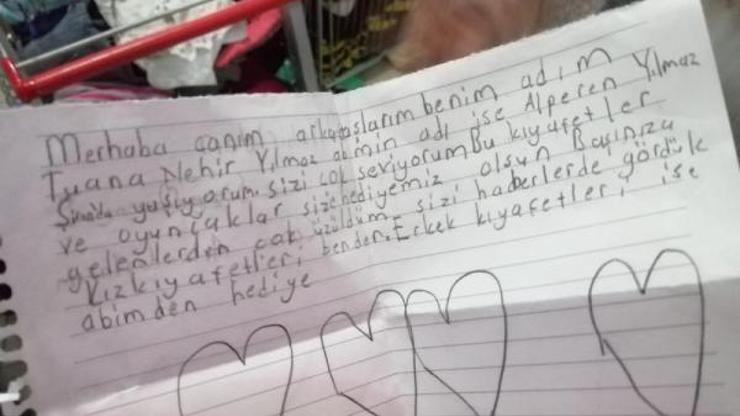 Merhaba canım arkadaşlarım benim adım
Tuana Nehir Yılmaz abimin adı ise Alperen Yılmaz
yaşıyorum. sizi çok seviyorum Bu kıyafetler
ve oyuncaklar size hediyemiz olsun Başınıza
gelenlerden çok üzüldüm sizi haberlerde gördük
Kız kıyafetleri benden. Erkek kıyafetleri ise
abimden hediye